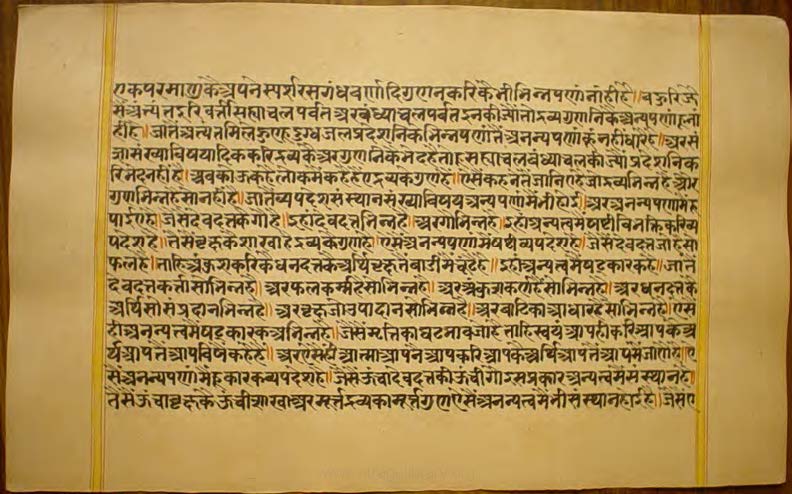 एकपरमाणुकैअपनेस्पर्शरसगंधवर्णादिगुणनकरिकैभीभिन्नपणांनांहीहै॥बहुरिजै
सैंअत्यंतदूरिवर्तीसह्याचलपर्वतअरबंध्याचलपर्वतइनकीज्योंतोद्रव्यगुणनिकैअन्यपणांहूनां
हीहै॥जातैंअत्यंतमिलेहुएदुग्धजलप्रदेशनिकैभिन्नपणांतैंअनन्यपणांकूंनहींधारैहै॥अरसं
ज्ञासंख्याविषयादिककरिद्रव्यकैअरगुणनिकैभेदहैतोहूसह्याचलबंध्याचलकीज्योंप्रदेशनिक
रिभेदनहींहै॥अबकोऊकहैलोकमेंकहैहैएद्रव्यकेगुणहै॥ऐसेंकहनेतैंजानिएहैजोद्रव्यभिन्नहैऔर
गुणभिन्नहैसोनहींहै॥जातैंव्यपदेशसंस्थानसंख्याविषयअन्यपणांमेंभीहोई॥अरअनन्यपणांमेंहू
पाईएहै॥जैसेंदेवदत्तकेगौहै॥इहांदेवदत्तभिन्नहै॥अरगौभिन्नहै॥इहांअन्यत्वमेंषष्ठीविभक्तिकरिव्य
पदेशहै॥तैसेंवृक्षकेशाखाहैद्रव्यकेगुणहै॥ऐसेंअनन्यपणांमेंषष्ठीव्यपदेशहै॥जैसेंदेवदत्तजोहैसो
फलहै॥ताहिअंकुशकरिकैधनदत्तकेअर्थिवृक्षतैंबाडीमेंचूंटेहै॥इहांअन्यत्वमेंषट्कारकहै॥जातैं
देवदत्तकर्तासोभिन्नहै॥अरफलकर्महैसोभिन्नहै॥अरअंकुशकरणहैसोभिन्नहै॥अरधनदत्तके
अर्थिसोसंप्रदानभिन्नहै॥अरवृक्षजोउपादानसोभिन्नहै॥अरबाटिकाआधारहैसोभिन्नहै॥ऐसैं
हीअनन्यत्वमेंषट्कारकअभिन्नहै॥जैसेंमृत्तिकाघटभावजोहैताहिस्वयंआपहीकरिआपकेअ
र्थिआपतैंआपविषेंकरैहै॥अरऐसेंहीआत्माआपनेंआपकरिआपकैअर्थिआपतैंआपमेंजाणेंहै॥ऐ
सेंअनन्यपणांमेंहूकारकव्यपदेशहै॥जैसेंऊंचादेवदत्तकीऊंचीगौइसप्रकारअन्यत्वमेंसंस्थानहै॥
तैसेंऊंचावृक्षकेऊंचीशाखाअरमूर्त्तद्रव्यकामूर्त्तगुणऐसेंअनन्यत्वमेंभीसंस्थानहोईहै॥जैसेंए